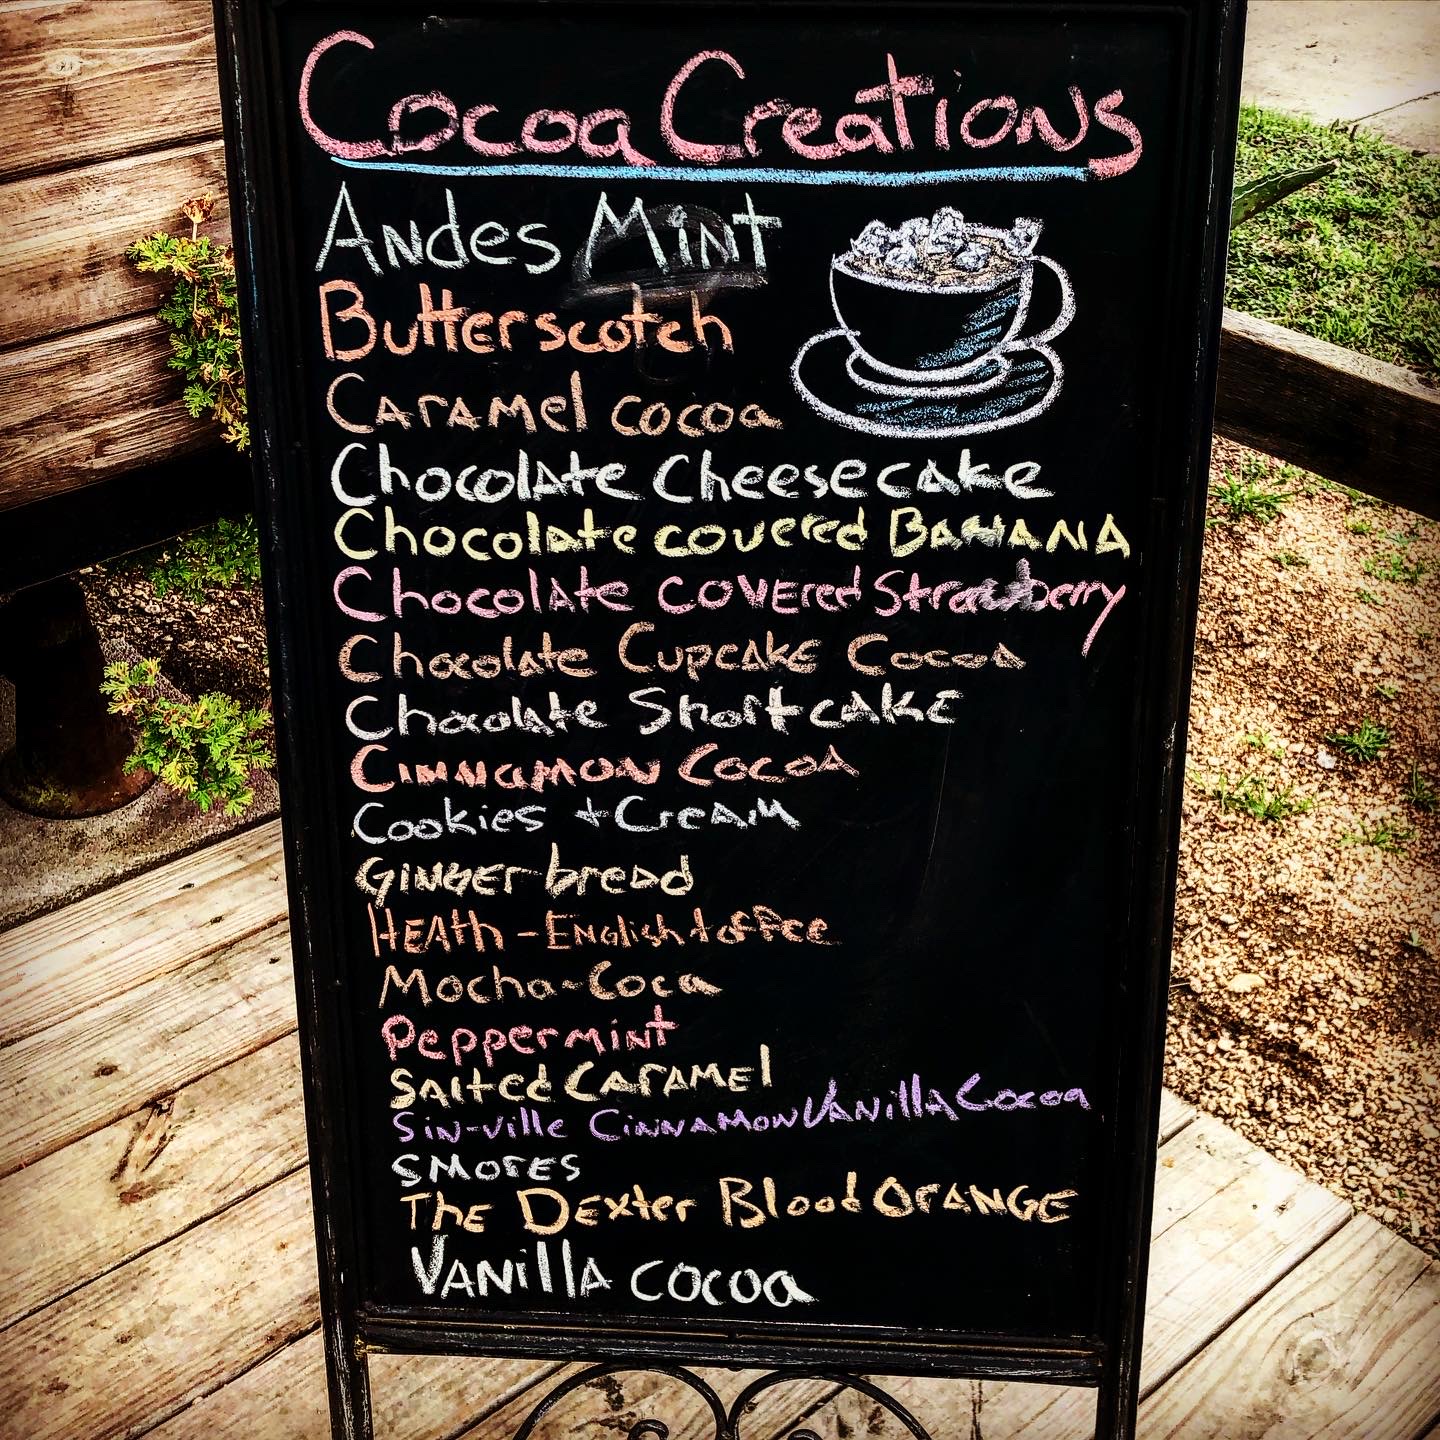 Cocoa Creations
Andes Mint
Butterscotch
Caramel cocoa
Chocolate Cheesecake
Chocolate covered BANANA
Chocolate covered Strawberry
Chocolate Cupcake Cocoa
Chocolate Shortcake
Cinnamon Cocoa
Cookies + Cream
Gingerbread
HEAth - English toffee
Mocha-Coca
Peppermint
Salted Caramel
Sin-ville Cinnamon Vanilla Cocoa
Smores
The Dexter Blood ORANGE
Vanilla cocoa